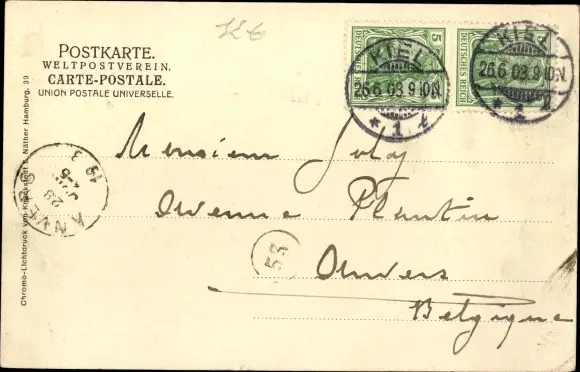 POSTKARTE.
WELTPOSTVEREIN.
CARTE-POSTALE.
UNION POSTALE UNIVERSELLE.
5
DEUTSCHES REICH
DEUTSCHES REICH
KIEL
26.6.03.9-10N.
* 1 l
KIEL
26.6.03.9-10N.
Monsieur Joly
Avenue Plantin
Anvers
Belgique
ANVERS
28
4-5
1903
53
Chromo-Lichtdruck von Knackstedt & Näther Hamburg. 39